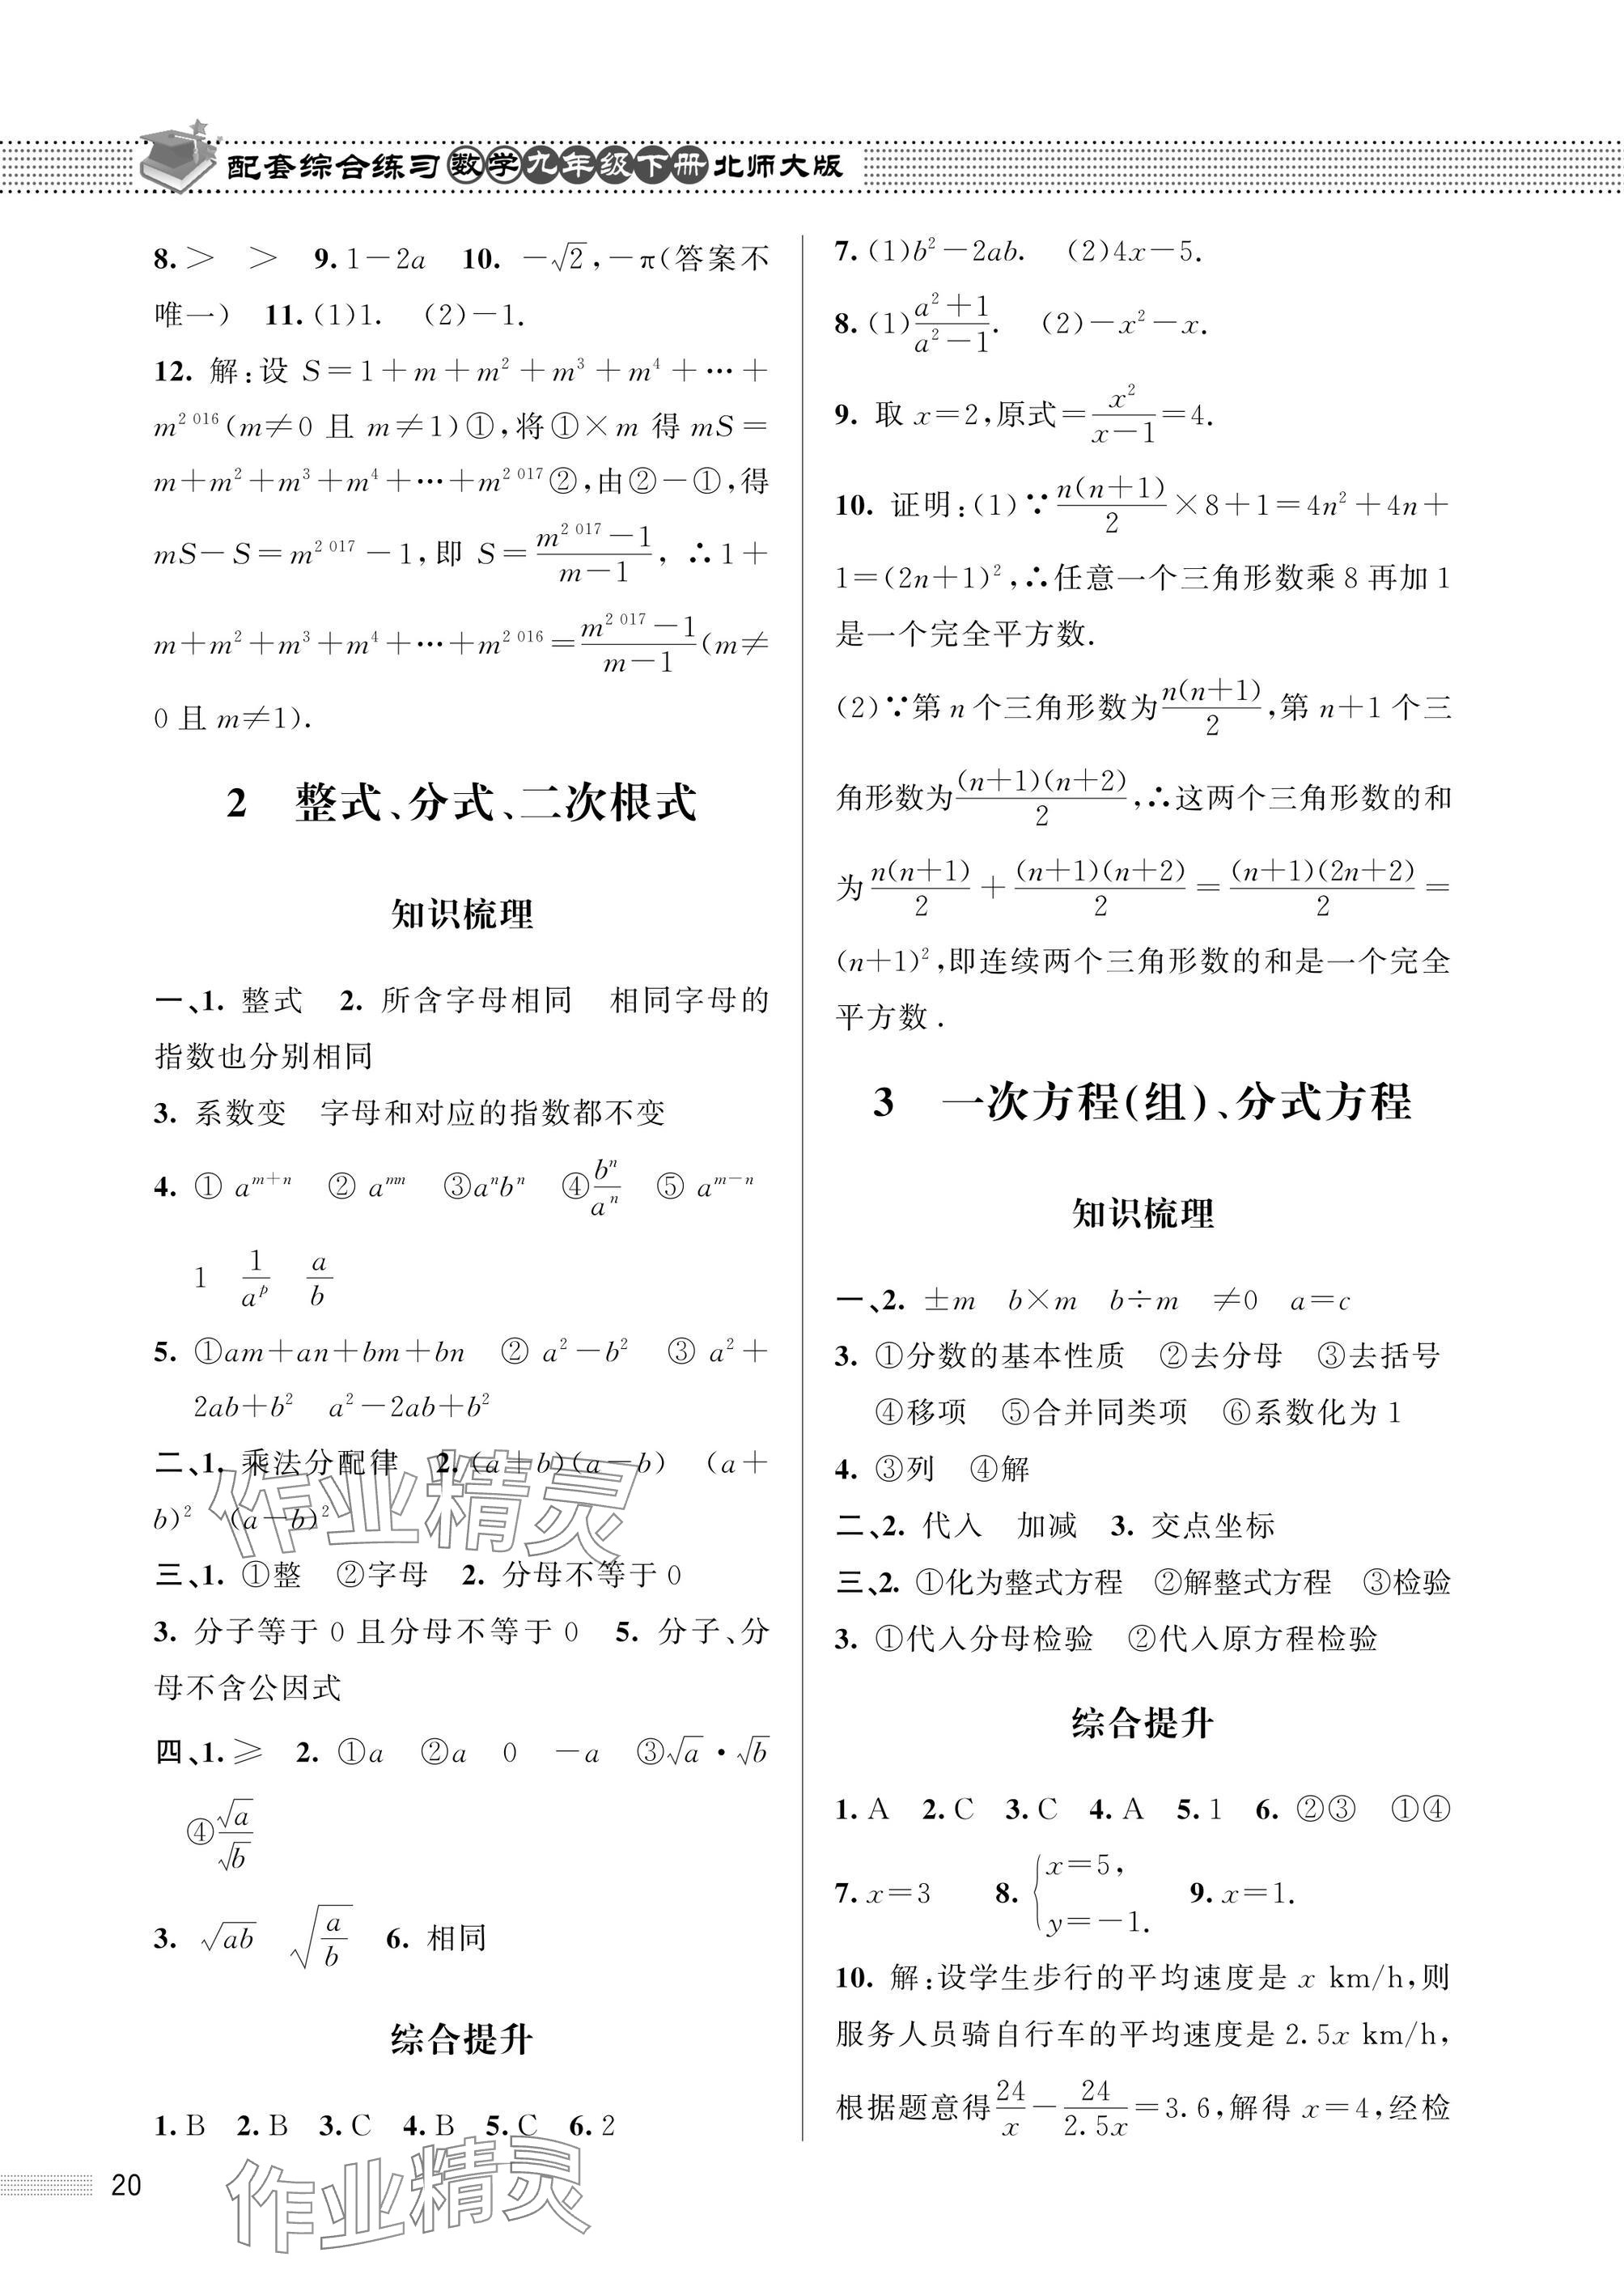 配套综合练习 数学九年级下册 北师大版
8. >　>　9. 1－2a　10. －√2，－π（答案不
唯一）　11. (1)1.　(2)－1.
12. 解：设 S＝1＋m＋m²＋m³＋m⁴＋…＋
m^{2 016}（m≠0 且 m≠1）①，将①×m 得 mS＝
m＋m²＋m³＋m⁴＋…＋m^{2 017}②，由②－①，得
mS－S＝m^{2 017}－1，即 S＝\frac{m^{2 017}－1}{m－1}，∴1＋
m＋m²＋m³＋m⁴＋…＋m^{2 016}＝\frac{m^{2 017}－1}{m－1}（m≠
0 且 m≠1）.
2　整式、分式、二次根式
知识梳理
一、1. 整式　2. 所含字母相同　相同字母的
指数也分别相同
3. 系数变　字母和对应的指数都不变
4. ① a^{m＋n}　② a^{mn}　③a^n b^n　④\frac{b^n}{a^n}　⑤ a^{m－n}
1　\frac{1}{a^p}　\frac{a}{b}
5. ①am＋an＋bm＋bn　② a²－b²　③ a²＋
2ab＋b²　a²－2ab＋b²
二、1. 乘法分配律　2. (a＋b)(a－b)　(a＋
b)²　(a－b)²
三、1. ①整　②字母　2. 分母不等于 0
3. 分子等于 0 且分母不等于 0　5. 分子、分
母不含公因式
四、1. ≥　2. ①a　②a　0　－a　③√a・√b
④\frac{√a}{√b}
3. √ab　\sqrt{\frac{a}{b}}　6. 相同
综合提升
1. B　2. B　3. C　4. B　5. C　6. 2
7. (1)b²－2ab.　(2)4x－5.
8. (1)\frac{a²＋1}{a²－1}.　(2)－x²－x.
9. 取 x＝2，原式＝\frac{x²}{x－1}＝4.
10. 证明：(1)∵\frac{n(n＋1)}{2}×8＋1＝4n²＋4n＋
1＝(2n＋1)²，∴任意一个三角形数乘 8 再加 1
是一个完全平方数.
(2)∵第 n 个三角形数为\frac{n(n＋1)}{2}，第 n＋1 个三
角形数为\frac{(n＋1)(n＋2)}{2}，∴这两个三角形数的和
为\frac{n(n＋1)}{2}＋\frac{(n＋1)(n＋2)}{2}＝\frac{(n＋1)(2n＋2)}{2}＝
(n＋1)²，即连续两个三角形数的和是一个完全
平方数.
3　一次方程（组）、分式方程
知识梳理
一、2. ±m　b×m　b÷m　≠0　a＝c
3. ①分数的基本性质　②去分母　③去括号
④移项　⑤合并同类项　⑥系数化为 1
4. ③列　④解
二、2. 代入　加减　3. 交点坐标
三、2. ①化为整式方程　②解整式方程　③检验
3. ①代入分母检验　②代入原方程检验
综合提升
1. A　2. C　3. C　4. A　5. 1　6. ②③　①④
7. x＝3　8. {x＝5，
y＝－1.　9. x＝1.
10. 解：设学生步行的平均速度是 x km/h，则
服务人员骑自行车的平均速度是 2.5x km/h，
根据题意得\frac{24}{x}－\frac{24}{2.5x}＝3.6，解得 x＝4，经检
20
作业精灵
作业精灵